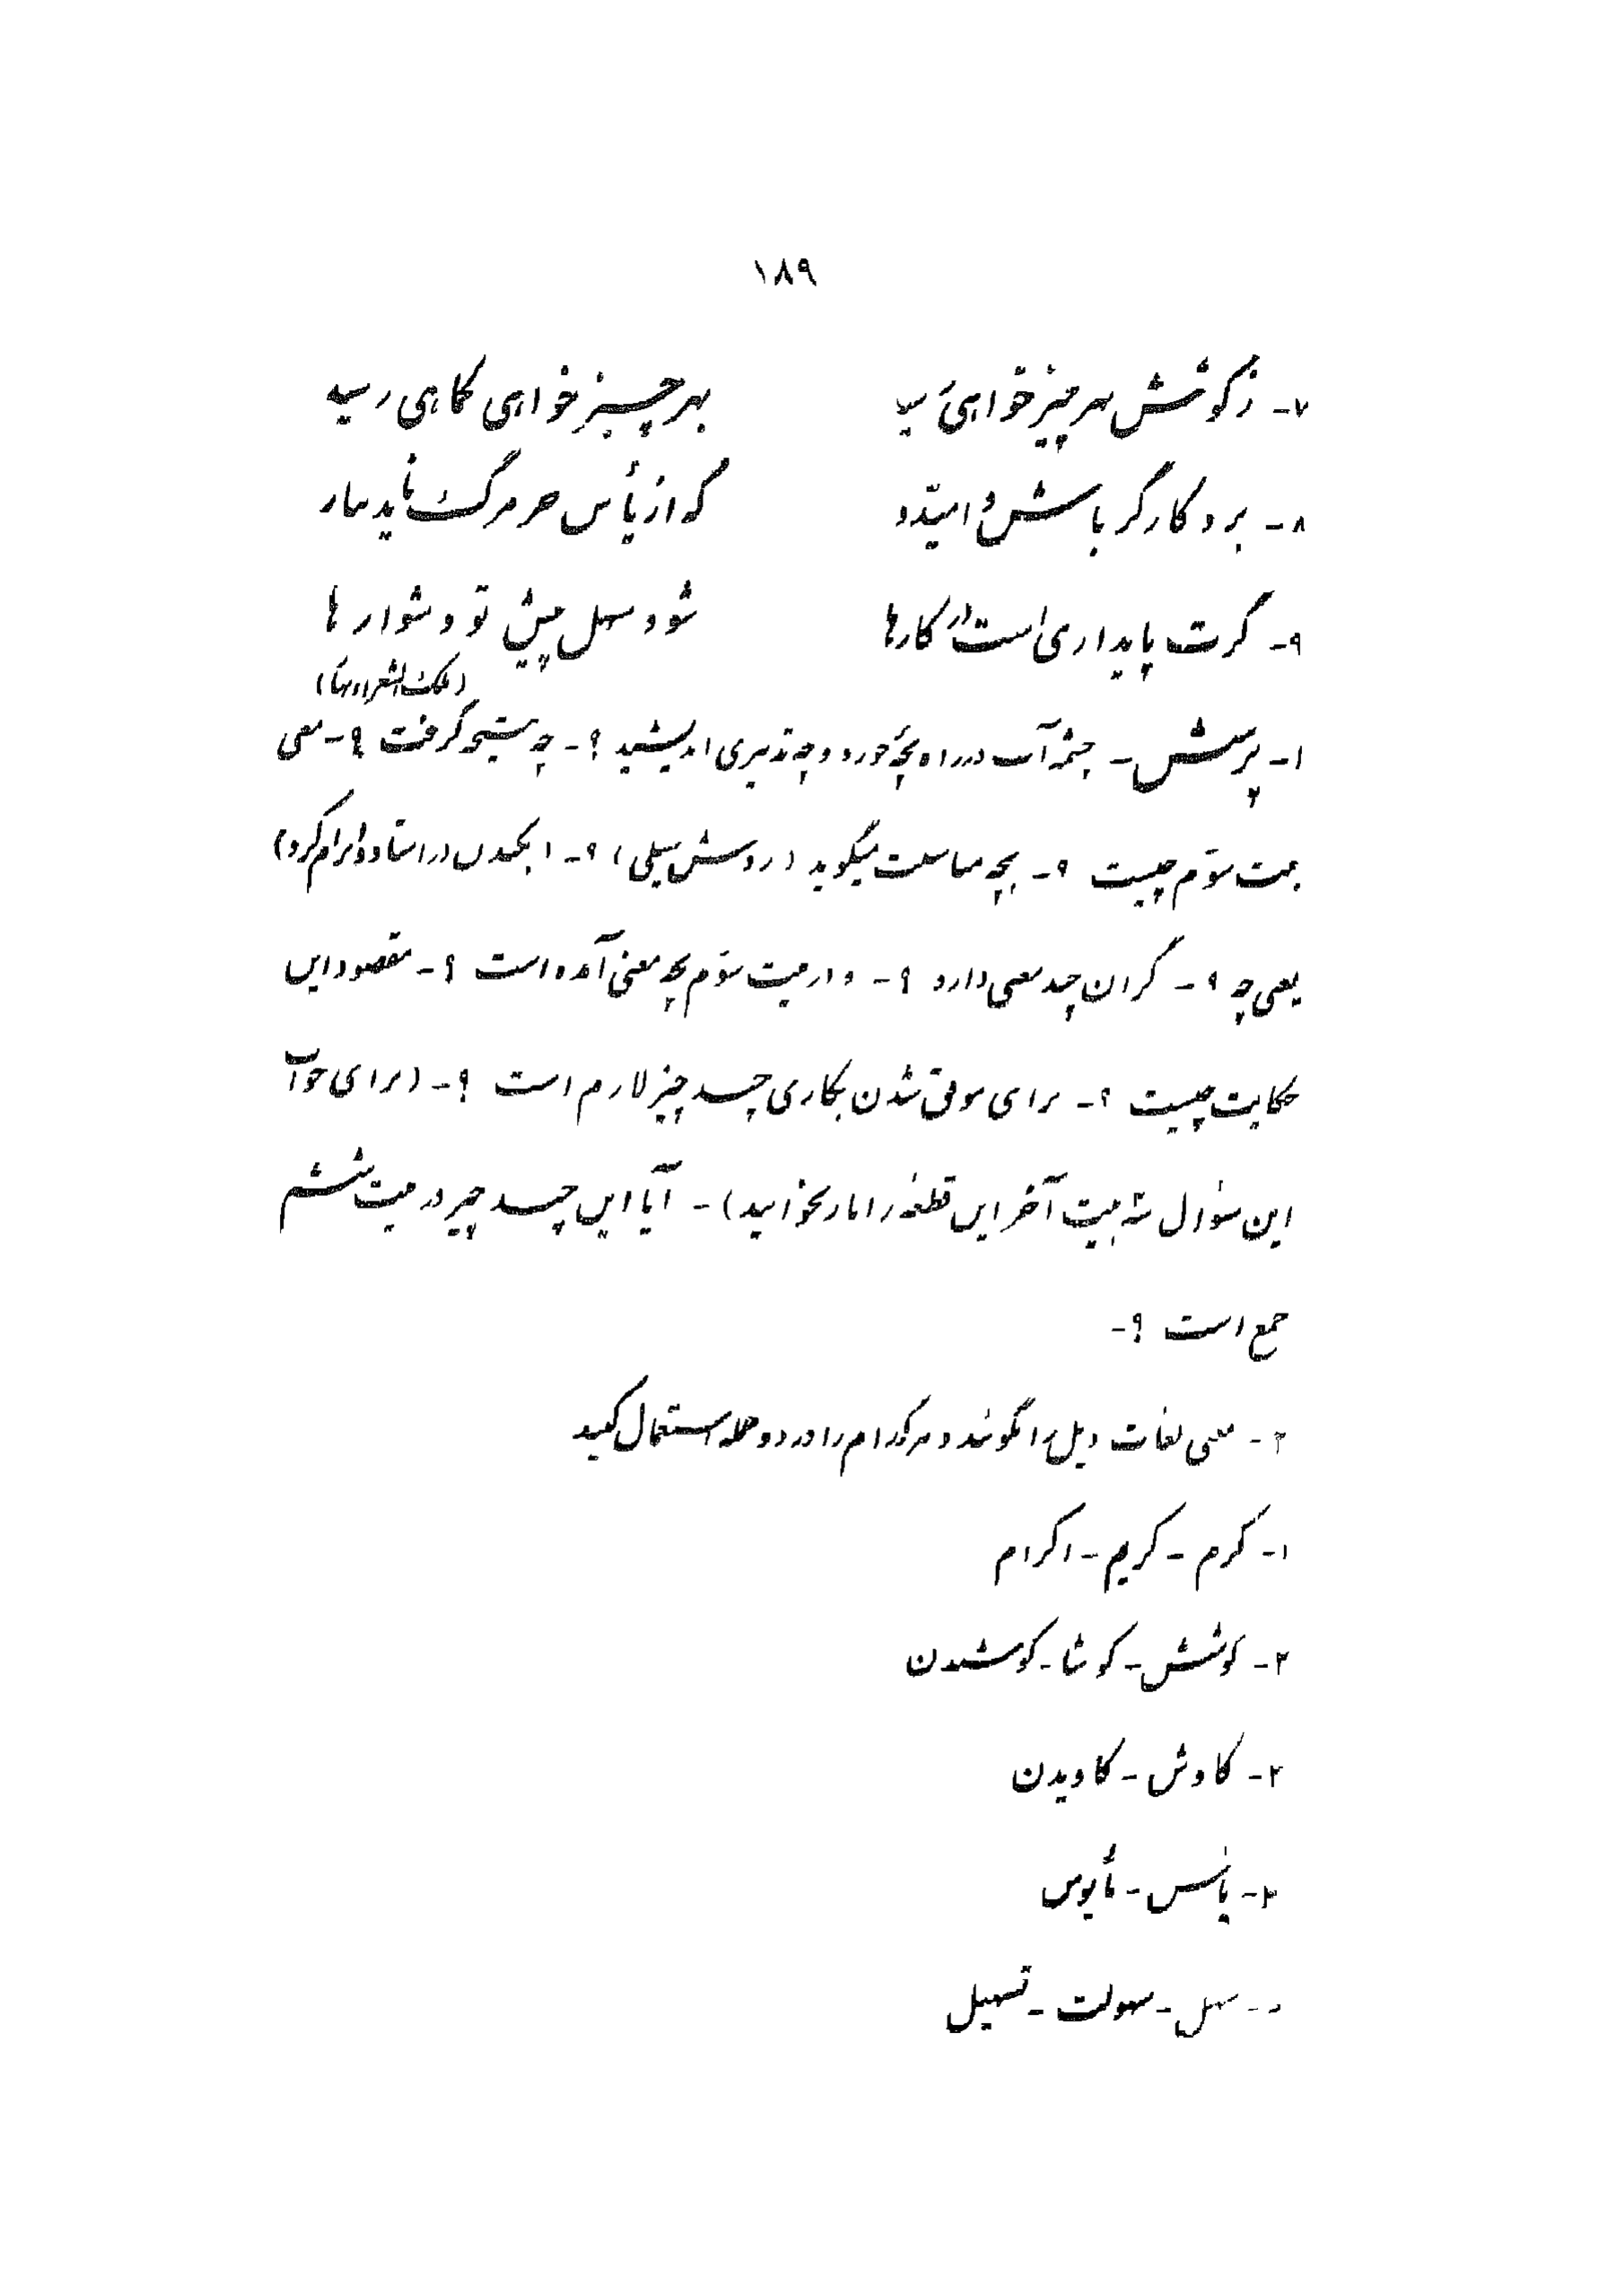 ۱۸۹
۷- ز کوشش بهر چیز خواهی رسید بهر چیز خواهی کماهی رسید
۸- برو کارگر باش و امیدوار که از یأس جز مرگ ناید ببار
۹- گرت پایداری است در کارها شود سهل پیش تو دشوارها
(ملک الشعراء بهار)
۱- پرسش - چشمه آب در راه بچه خورد و چه تدبیری اندیشید ؟- چه نتیجه گرفت ؟- معنی
بیت سوّم چیست ؟- بچه مناسبت میگوید (زدش سیلی) ؟- (بکندن در استاد و ابرام کرد)
یعنی چه ؟- گران چند معنی دارد ؟- و در بیت سوّم بچه معنی آمده است ؟- مقصود این
حکایت چیست ؟- برای موفق شدن بکاری چند چیز لازم است ؟- (برای جواب
این سؤال سه بیت آخر این قطعه را باز بخوانید) - آیا این چند چیز در بیت ششم
جمع است ؟-
۲- معنی لغات ذیل را بگوئید و هر کدام را در دو جمله استعمال کنید
۱- کرم - کریم - اکرام
۲- کوشش - کوشا - کوشیدن
۳- کاوش - کاویدن
۴- یأس - مأیوس
۵- سهل - سهولت - تسهیل